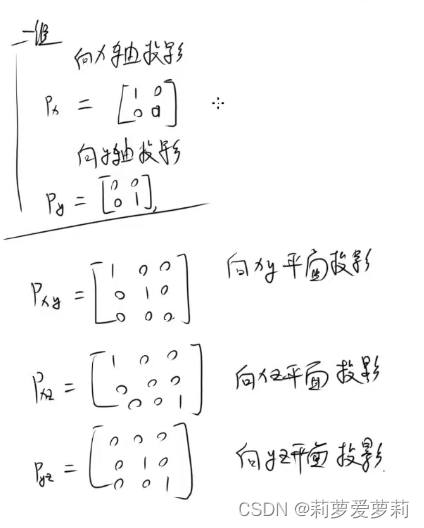 二维
向x轴投影
Px = [1 0
0 0]
向y轴投影
Py = [0 0
0 1],
Pxy = [1 0 0
0 1 0
0 0 0] 向xy平面投影
Pxz = [1 0 0
0 0 0
0 0 1] 向xz平面投影
Pyz = [0 0 0
0 1 0
0 0 1] 向yz平面投影
CSDN @莉萝爱萝莉